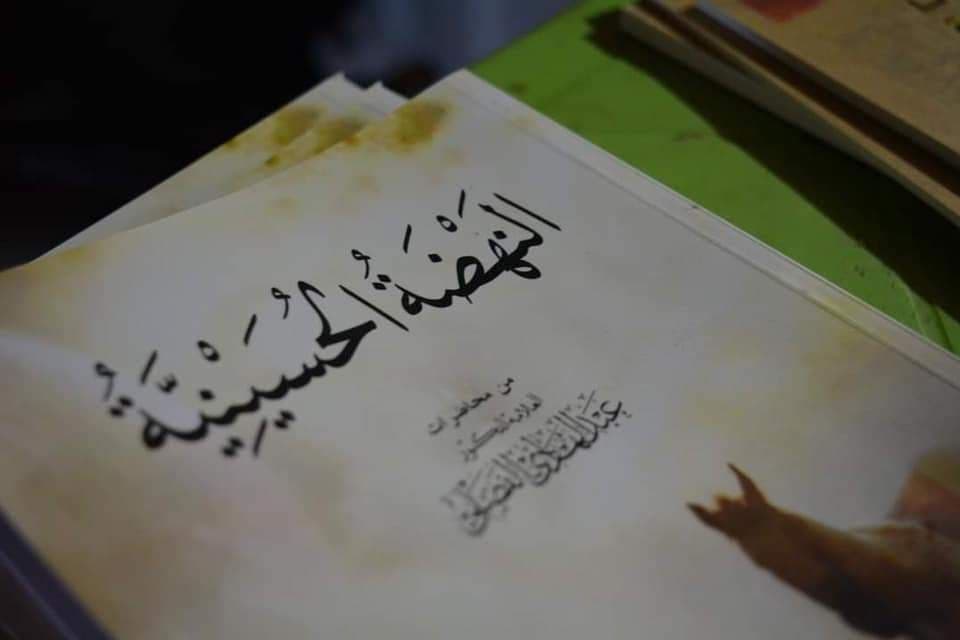 النَّهْضَةُ الحُسَيْنِيَّةُ
من محاضرات
العلامة الدكتور
عبد الهادي الفضلي